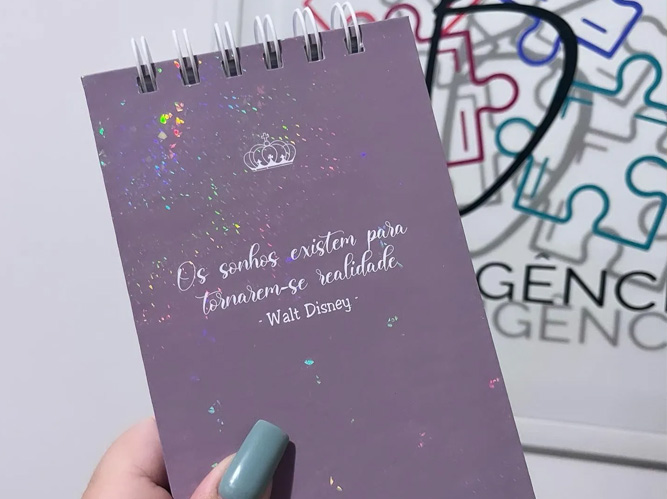 Os sonhos existem para
tornarem-se realidade
- Walt Disney -
GÊNCI